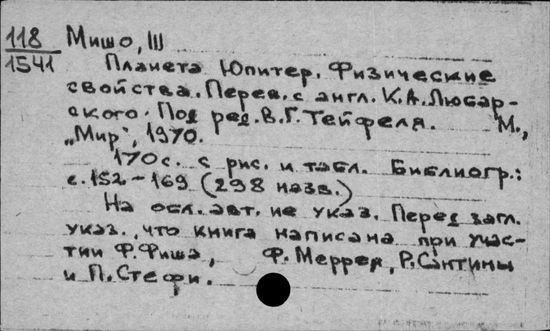 118
1541
Мишо, Ш
Планета Юпитер. Физические
свойства. Перев. с англ. К.А. Любар-
ского. Под ред. В.Г. Тейфеля. М.,
„Мир", 1970.
170 с. с рис. и табл. Библиогр.:
с. 152-169 (298 назв.)
На обл. авт. не указ. Перед загл.
указ., что книга написана при учас-
тии Ф. Фиша, Ф. Меррея, Р. Сантины
и П. Стефи.